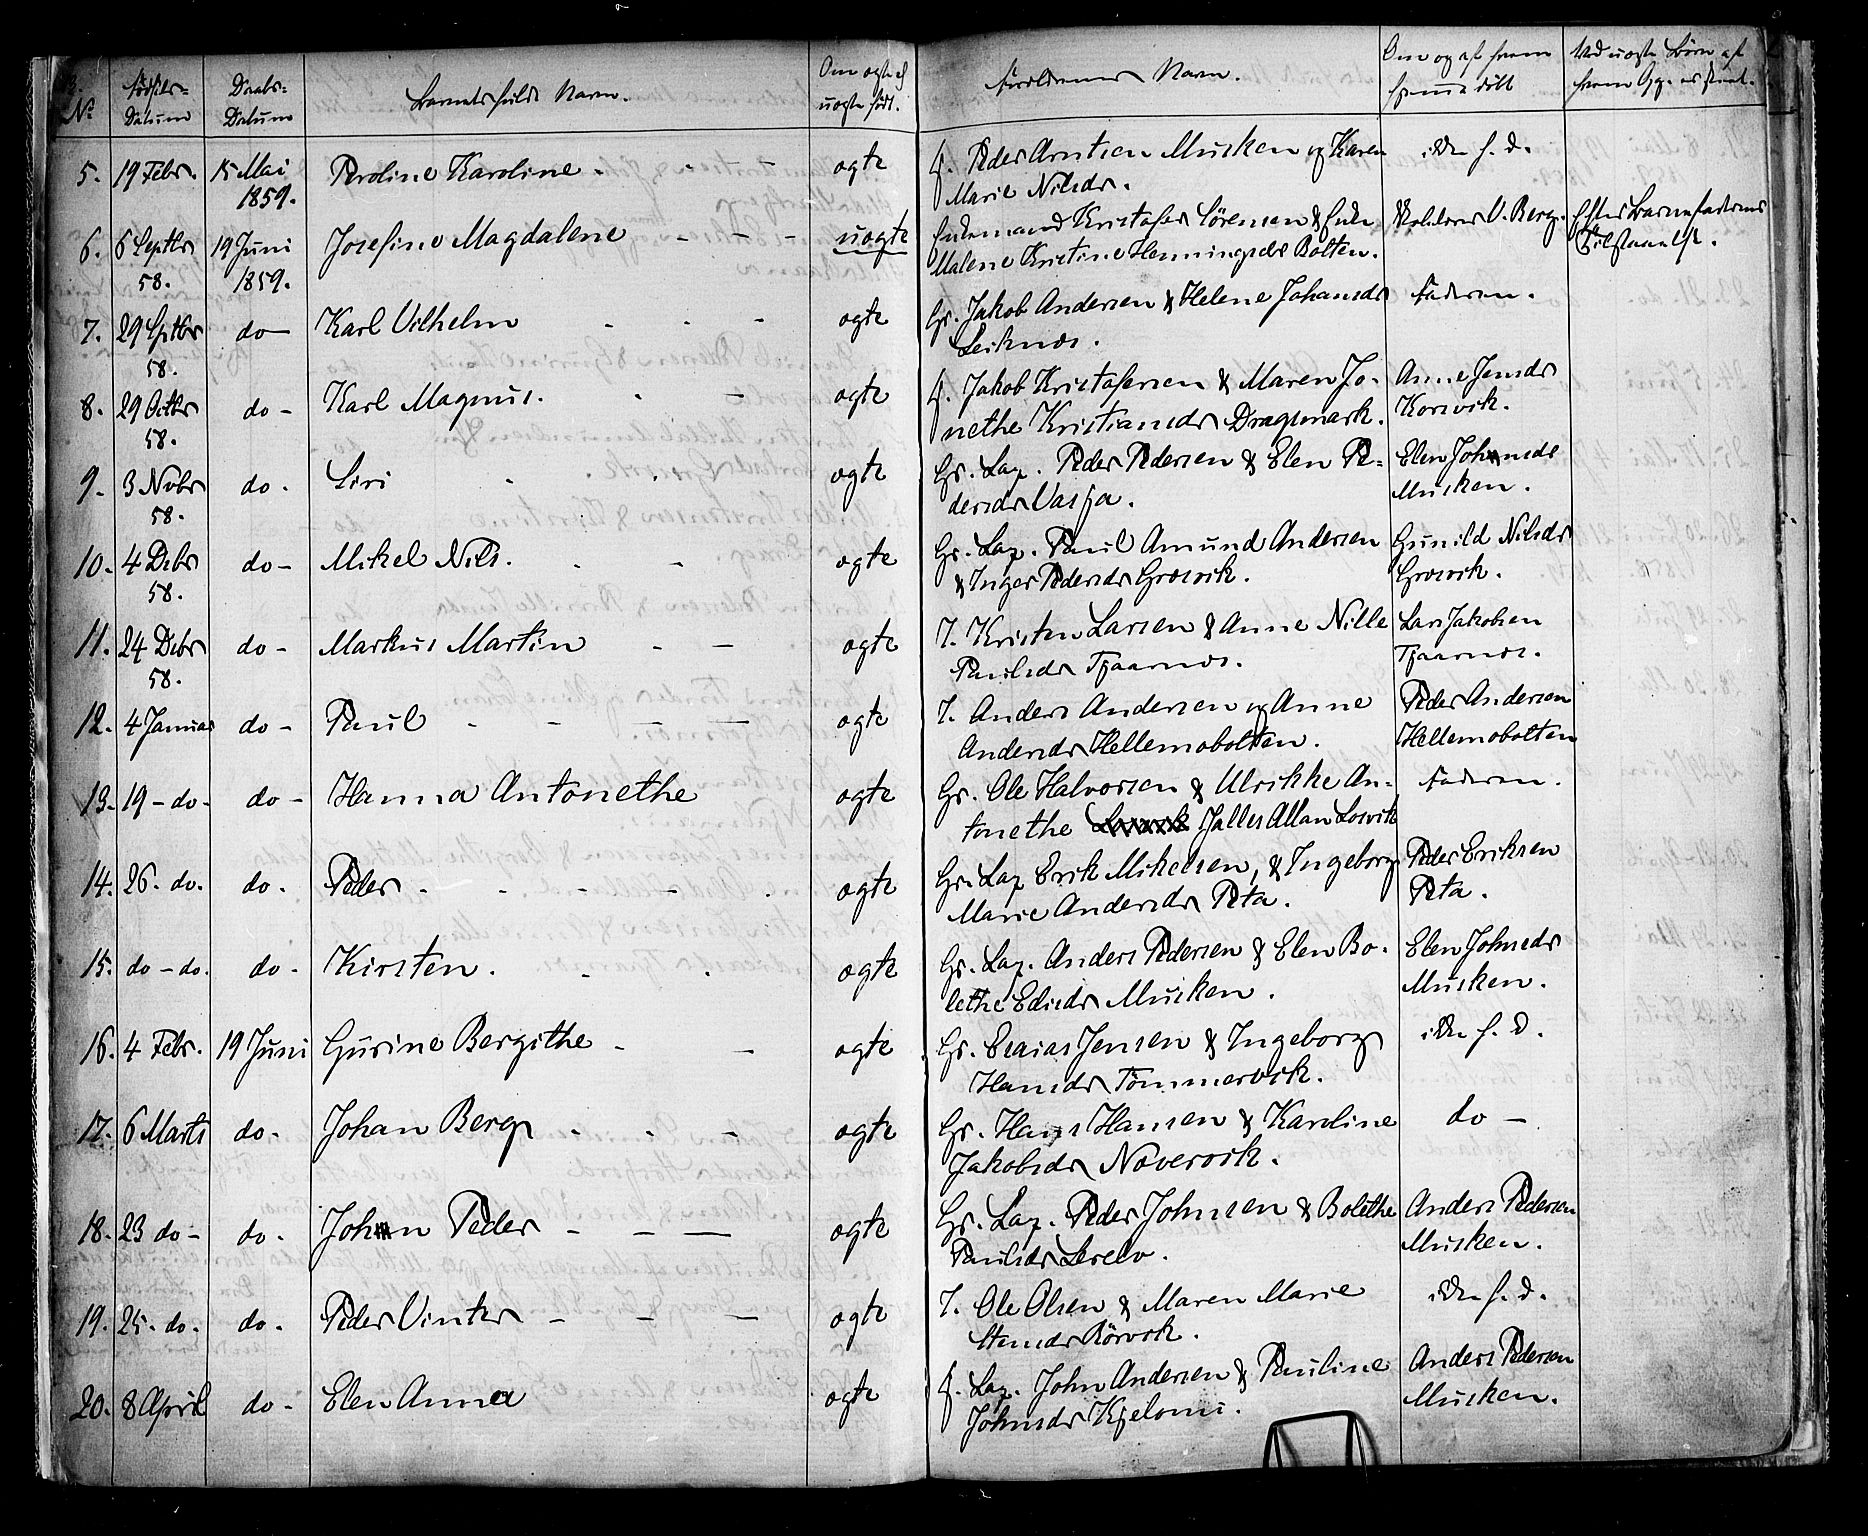 No Fødsels-Datum Daabs-Datum Barnets fulde Navn. Om ægte el uægte født. Forældrenes Navn. Om og af hvem hjemmedøbt Ved uægte Børn af hvem Opg. er skeet.
5. 19 Febr. 15 Mai Peroline Karoline. ægte F. Peder Arntsen Musken og Karen ikke h. d.
1859. Marie Nilsdr.
6. 6 Septbr 19 Juni Josefine Magdalene - - - uægte Enkemand Kristofer Sörensen & Enke Skolelærer O. Berg. Efter Barnefaderens
58. 1859. Malene Kristine Henningsdr Bolten. Tilstaaelse.
7. 29 Sptbr do- Karl Vilhelm - - - ægte Gr. Jakob Andersen & Helene Johansdr Faderen.
58. Leiknæs.
8. 29 Octbr do- Karl Magnus. - - ægte F. Jakob Kristofersen & Maren Jo- Anne Jensdr
58. nethe Kristiansdr Dragsmark. Korsvik.
9. 3 Novbr do. Siri - - ægte Gr. Lap. Peder Pedersen & Elen Pe- Elen Johnsdr
58. dersdr Vasja. Musken.
10. 4 Debr do- Mikel Nils. - - ægte Gr. Lap. Paul Amund Andersen Gunild Nilsdr
58. & Inger Pedersdr Græsvik. Græsvik.
11. 24 Debr do- Markus Martin - - ægte I. Kristen Larsen & Anne Nille Lars Jakobsen
58. Paulsdr Tjaarnæs. Tjaarnæs.
12. 4 Januar do- Paul - - - - ægte I. Anders Andersen og Anne Peder Andersen
Andersdr Hellemobotten. Hellemobotten
13. 19-do- do- Hanna Antonethe ægte Gr. Ole Halvorsen & Ulrikke An- Faderen.
tonethe Jalles Allan Losvik
14. 26. do. do. Peder - - - - - ægte Gr. Lap Erik Mikelsen, & Ingeborg Peder Eriksen
Marie Andersdr Peta. Peta.
15. do-do. do- Kirsten. - - ægte Gr. Lap. Anders Pedersen & Elen Bo- Elen Johnsdr
lethe Edisdr Musken. Musken.
16. 4 Febr. 19 Juni Gurine Bergithe - - ægte Gr. Esaias Jensen & Ingeborg ikke h. d.
Hansdr Tömmervik.
17. 6 Marts do. Johan Berg - - - ægte Gr. Hans Hansen & Karoline do -
Jakobsdr Næververvik.
18. 23 do- do. John Peder - - - ægte Gr. Lap. Peder Johnsen & Bolethe Anders Pedersen
Paulsdr Leselv. Musken.
19. 25. do. do. Peder Vinter - - - ægte I. Ole Olsen & Maren Marie ikke h. d.
Hansdr Rörvik.
20. 8 April do- Elen Anna ægte F. Lap. John Andersen & Pauline Anders Pedersen
Johnsdr Kjelomi. Musken.